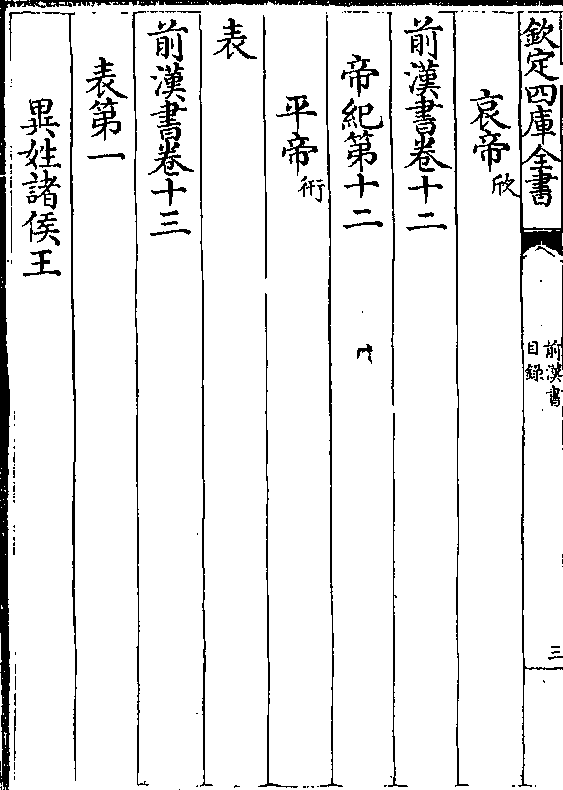 欽定四庫全書
前漢書
目錄
三
哀帝欣
前漢書卷十二
帝紀第十二
平帝衎
表
前漢書卷十三
表第一
異姓諸侯王